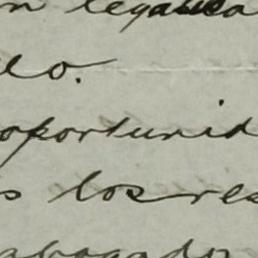 lo.
oportunid
s los res
abogado